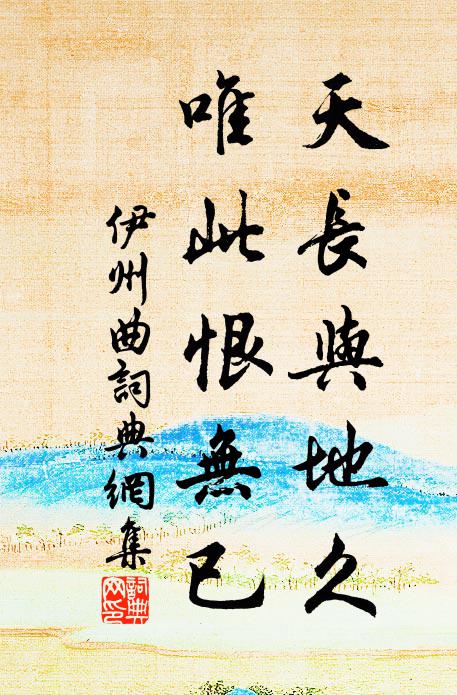 天長與地久
唯此恨無已
伊州曲詞典網集
詞典